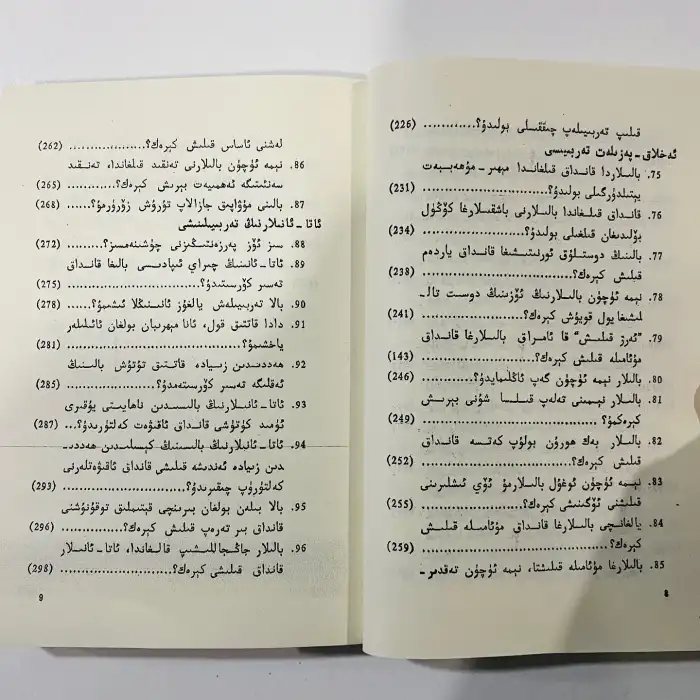 قىلىپ تەربىيىلەپ چىققىلى بولىدۇ؟............ (226)
ئەخلاق-پەزىلەت تەربىيىسى
75. بالىلاردا قانداق قىلغاندا مېھىر-مۇھەببەت
يېتىلدۈرگىلى بولىدۇ؟............ (231)
76. قانداق قىلغاندا بالىلارنى باشقىلارغا كۆڭۈل
بۆلىدىغان قىلغىلى بولىدۇ؟............ (234)
77. بالىنىڭ دوستلۇق ئورنىتىشىغا قانداق ياردەم
قىلىش كېرەك؟............ (238)
78. نېمە ئۈچۈن بالىلارنىڭ ئۆزىنىڭ دوست تال-
لىشىغا يول قويۇش كېرەك؟............ (241)
79. “ئەرز قىلىش” قا ئامراق بالىلارغا قانداق
مۇئامىلە قىلىش كېرەك؟............ (143)
80. بالىلار نېمە ئۈچۈن گەپ ئاڭلىمايدۇ؟............ (246)
81. بالىلار نېمىنى تەلەپ قىلسا شۇنى بېرىش
كېرەكمۇ؟............ (249)
82. بالىلار بەك ھورۇن بولۇپ كەتسە قانداق
قىلىش كېرەك؟............ (252)
83. نېمە ئۈچۈن ئوغۇل بالىلارمۇ ئۆي ئىشلىرىنى
قىلىشنى ئۆگىنىشى كېرەك؟............ (255)
84. يالغانچى بالىلارغا قانداق مۇئامىلە قىلىش
كېرەك؟............ (259)
85. بالىلارغا مۇئامىلە قىلىشتا، نېمە ئۈچۈن تەقدىر-
8
لەشنى ئاساس قىلىش كېرەك؟............ (262)
86. نېمە ئۈچۈن بالىلارنى تەنقىد قىلغاندا، تەنقىد
سەنئىتىگە ئەھمىيەت بېرىش كېرەك؟............ (265)
87. بالىنى مۇۋاپىق جازالاپ تۇرۇش زۆرۈرمۇ؟... (268)
ئاتا-ئانىلارنىڭ تەربىيىلىنىشى
88. سىز ئۆز پەرزەنتىڭىزنى چۈشىنەمسىز؟........ (272)
89. ئاتا-ئانىنىڭ چىراي ئىپادىسى بالىغا قانداق
تەسىر كۆرسىتىدۇ؟............ (275)
90. بالا تەربىيىلەش يالغۇز ئانىنىڭلا ئىشىمۇ؟...... (278)
91. دادا قاتتىق قول، ئانا مېھرىبان بولغان ئائىلىلەر
ياخشىمۇ؟............ (281)
92. ھەددىدىن زىيادە قاتتىق تۇتۇش بالىنىڭ
ئەقلىگە تەسىر كۆرسىتەمدۇ؟............ (285)
93. ئاتا-ئانىلارنىڭ بالىسىدىن ناھايىتى يۇقىرى
ئۈمىد كۈتۈشى قانداق ئاقىۋەت كەلتۈرىدۇ؟... (287)
94. ئاتا-ئانىلارنىڭ بالىسىنىڭ كېسىلىدىن ھەددى-
دىن زىيادە ئەندىشە قىلىشى قانداق ئاقىۋەتلەرنى
كەلتۈرۈپ چىقىرىدۇ؟............ (293)
95. بالا بىلەن بولغان بىرىنچى قېتىملىق توقۇنۇشنى
قانداق بىر تەرەپ قىلىش كېرەك؟............ (296)
96. بالىلار جاڭجاللىشىپ قالغاندا، ئاتا-ئانىلار
قانداق قىلىشى كېرەك؟............ (298)
9